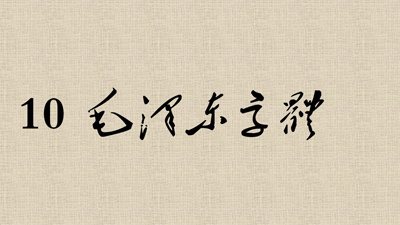 10 毛泽东字體